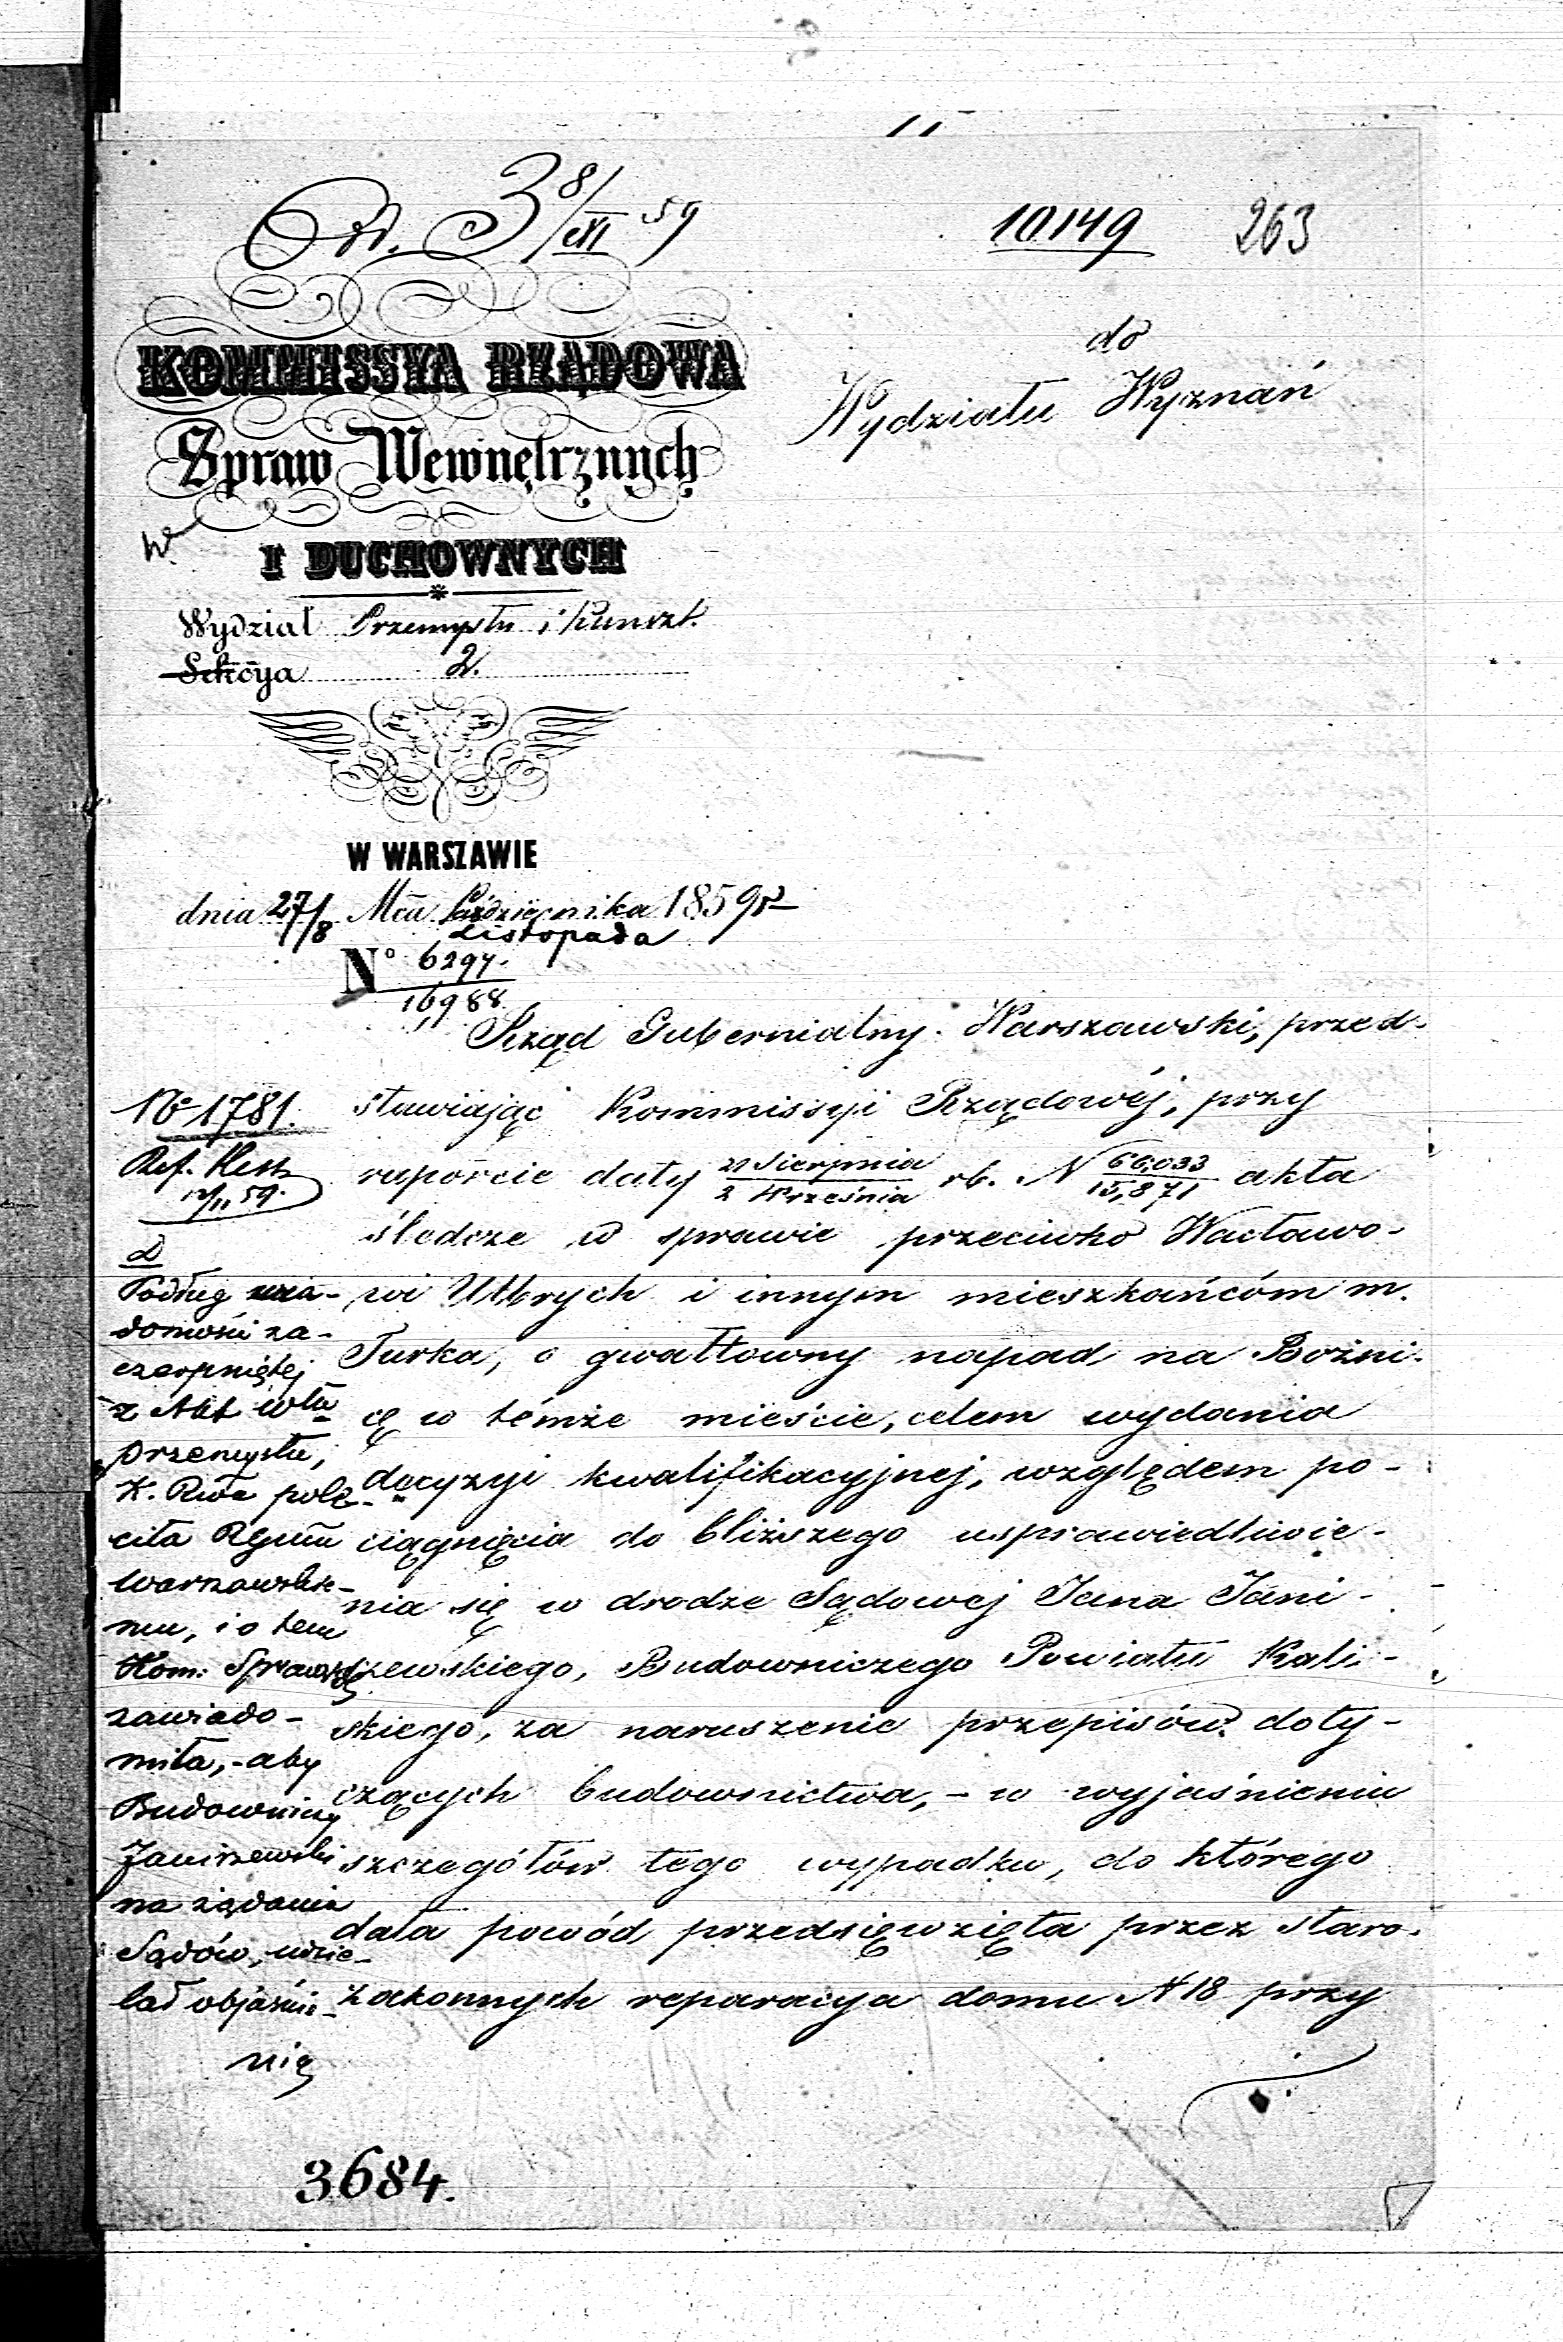 Od. 3 8/XI 59
10149 263
KOMMISSYA RZĄDOWA
Spraw Wewnętrznych
I DUCHOWNYCH
do
Wydziału Wyznań
Wydział Przemysłu i Kunszt.
Sekcya 2.
W WARSZAWIE
dnia 27/8 Mca Października 1859 r
Listopada
No 6297.
16988
Rząd Gubernialny Warszawski, przed-
stawiając Kommissyi Rządowéj, przy
raporcie daty 21 Sierpnia / 2 Września rb. N 66,033 / 15,871 akta
śledcze w sprawie przeciwko Wacławo-
wi Ulbrych i innym mieszkańcóm m.
Turka, o gwałtowny napad na Bożni-
cę w témże mieście, celem wydania
decyzyi kwalifikacyjnej, względem po-
ciągnięcia do bliższego usprawiedliwie-
nia się w drodze Sądowej Jana Jani-
szewskiego, Budowniczego Powiatu Kali-
skiego, za naruszenie przepisów doty-
czących budownictwa, - w wyjaśnieniu
szczegółów tego wypadku, do którego
dała powód przedsięwzięta przez staro-
zakonnych reparacya domu N 18 przy
No 1781.
Ref.
12/11 59.
Podług wia-
domości za-
czerpniętej
z Akt
Przemysłu,
K. Rwa pole-
ciła
Warszawskie-
mu, i o tem
Kom. Sprawied.
zawiado-
miła, - aby
Budowniczy
Janiszewski
na żądanie
Sądów, udzie-
lał objaśnie-
nia
3684.